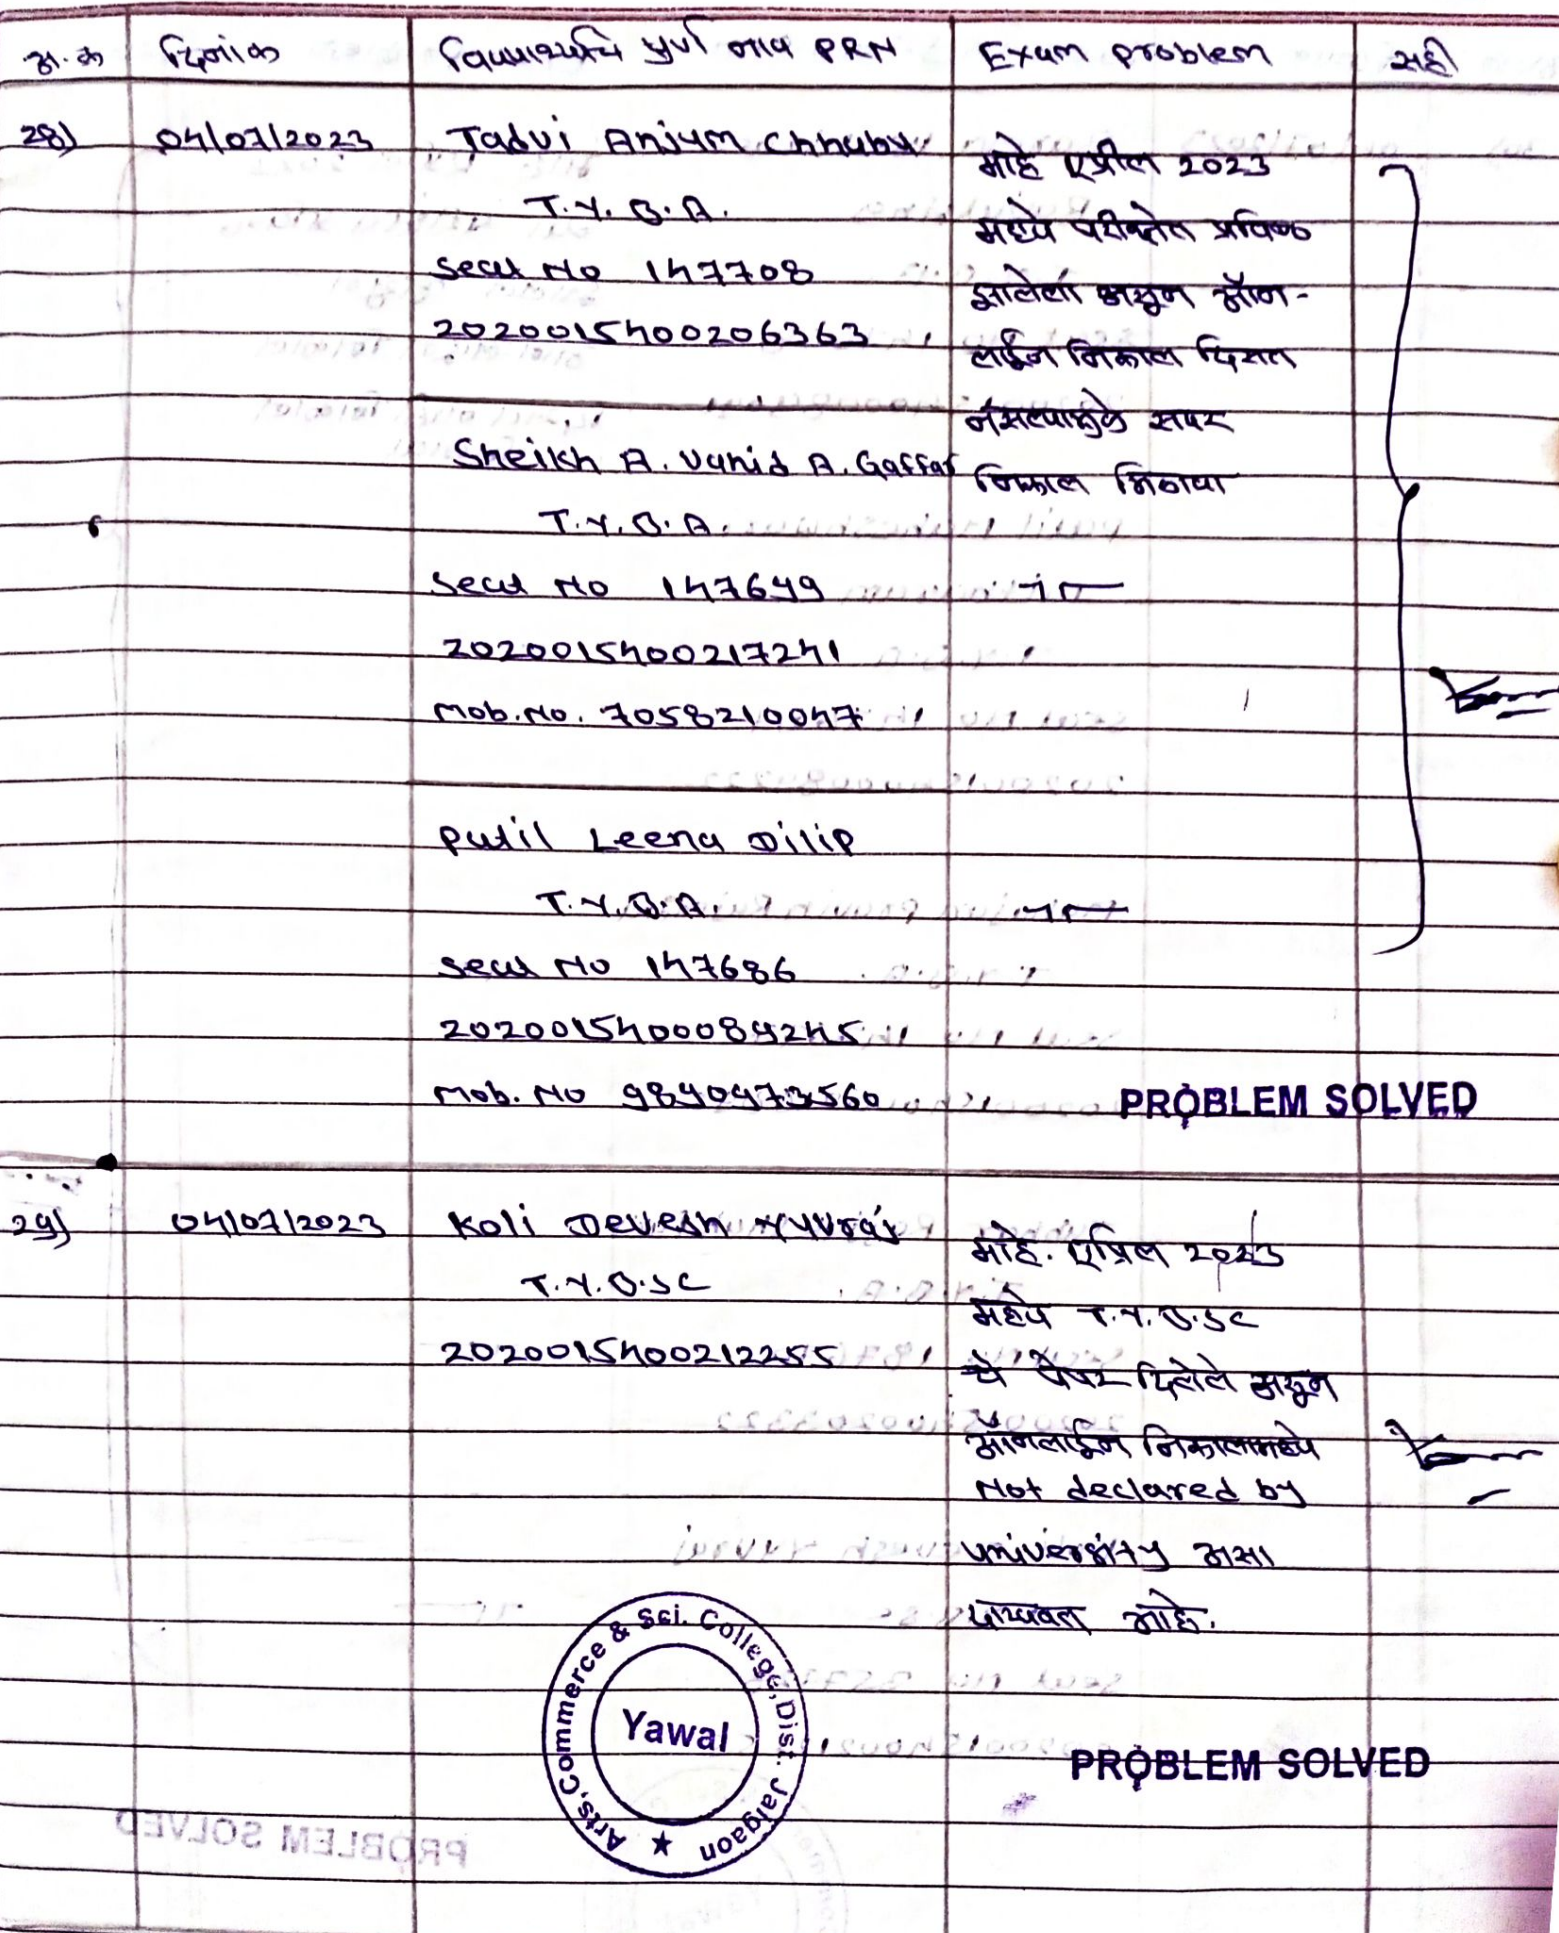 अ.क्र दिनांक विद्यार्थ्याचे पुर्ण नाव PRN Exam problem सही
28) 04/07/2023 Tadvi Anjum Chhabu
T.Y.B.A.
Seat No 147708
2020015400206363
माहे एप्रील 2023
मध्ये परीक्षेत प्रविष्ठ
झालेला असून ऑन-
लाईन निकाल दिसत
नसल्यामुळे सदर
निकाल मिळावा
Sheikh A. Vahid A. Gaffar
T.Y.B.A.
Seat No 147649
2020015400217241
Mob.No. 7058210047
Patil Leena Dilip
T.Y.B.A.
Seat No 147686
2020015400089245
Mob. No
PROBLEM SOLVED
29) 04/07/2023 Koli Devesh Yuvraj
T.Y.B.SC
2020015400212255
माहे. एप्रिल 2023
मध्ये T.Y.B.SC
चे पेपर दिलेले असून
ऑनलाईन निकालामध्ये
Not declared by
university असा
दाखवत आहे.
Arts, Commerce & Sci. College, Dist. Jalgaon
Yawal
PROBLEM SOLVED